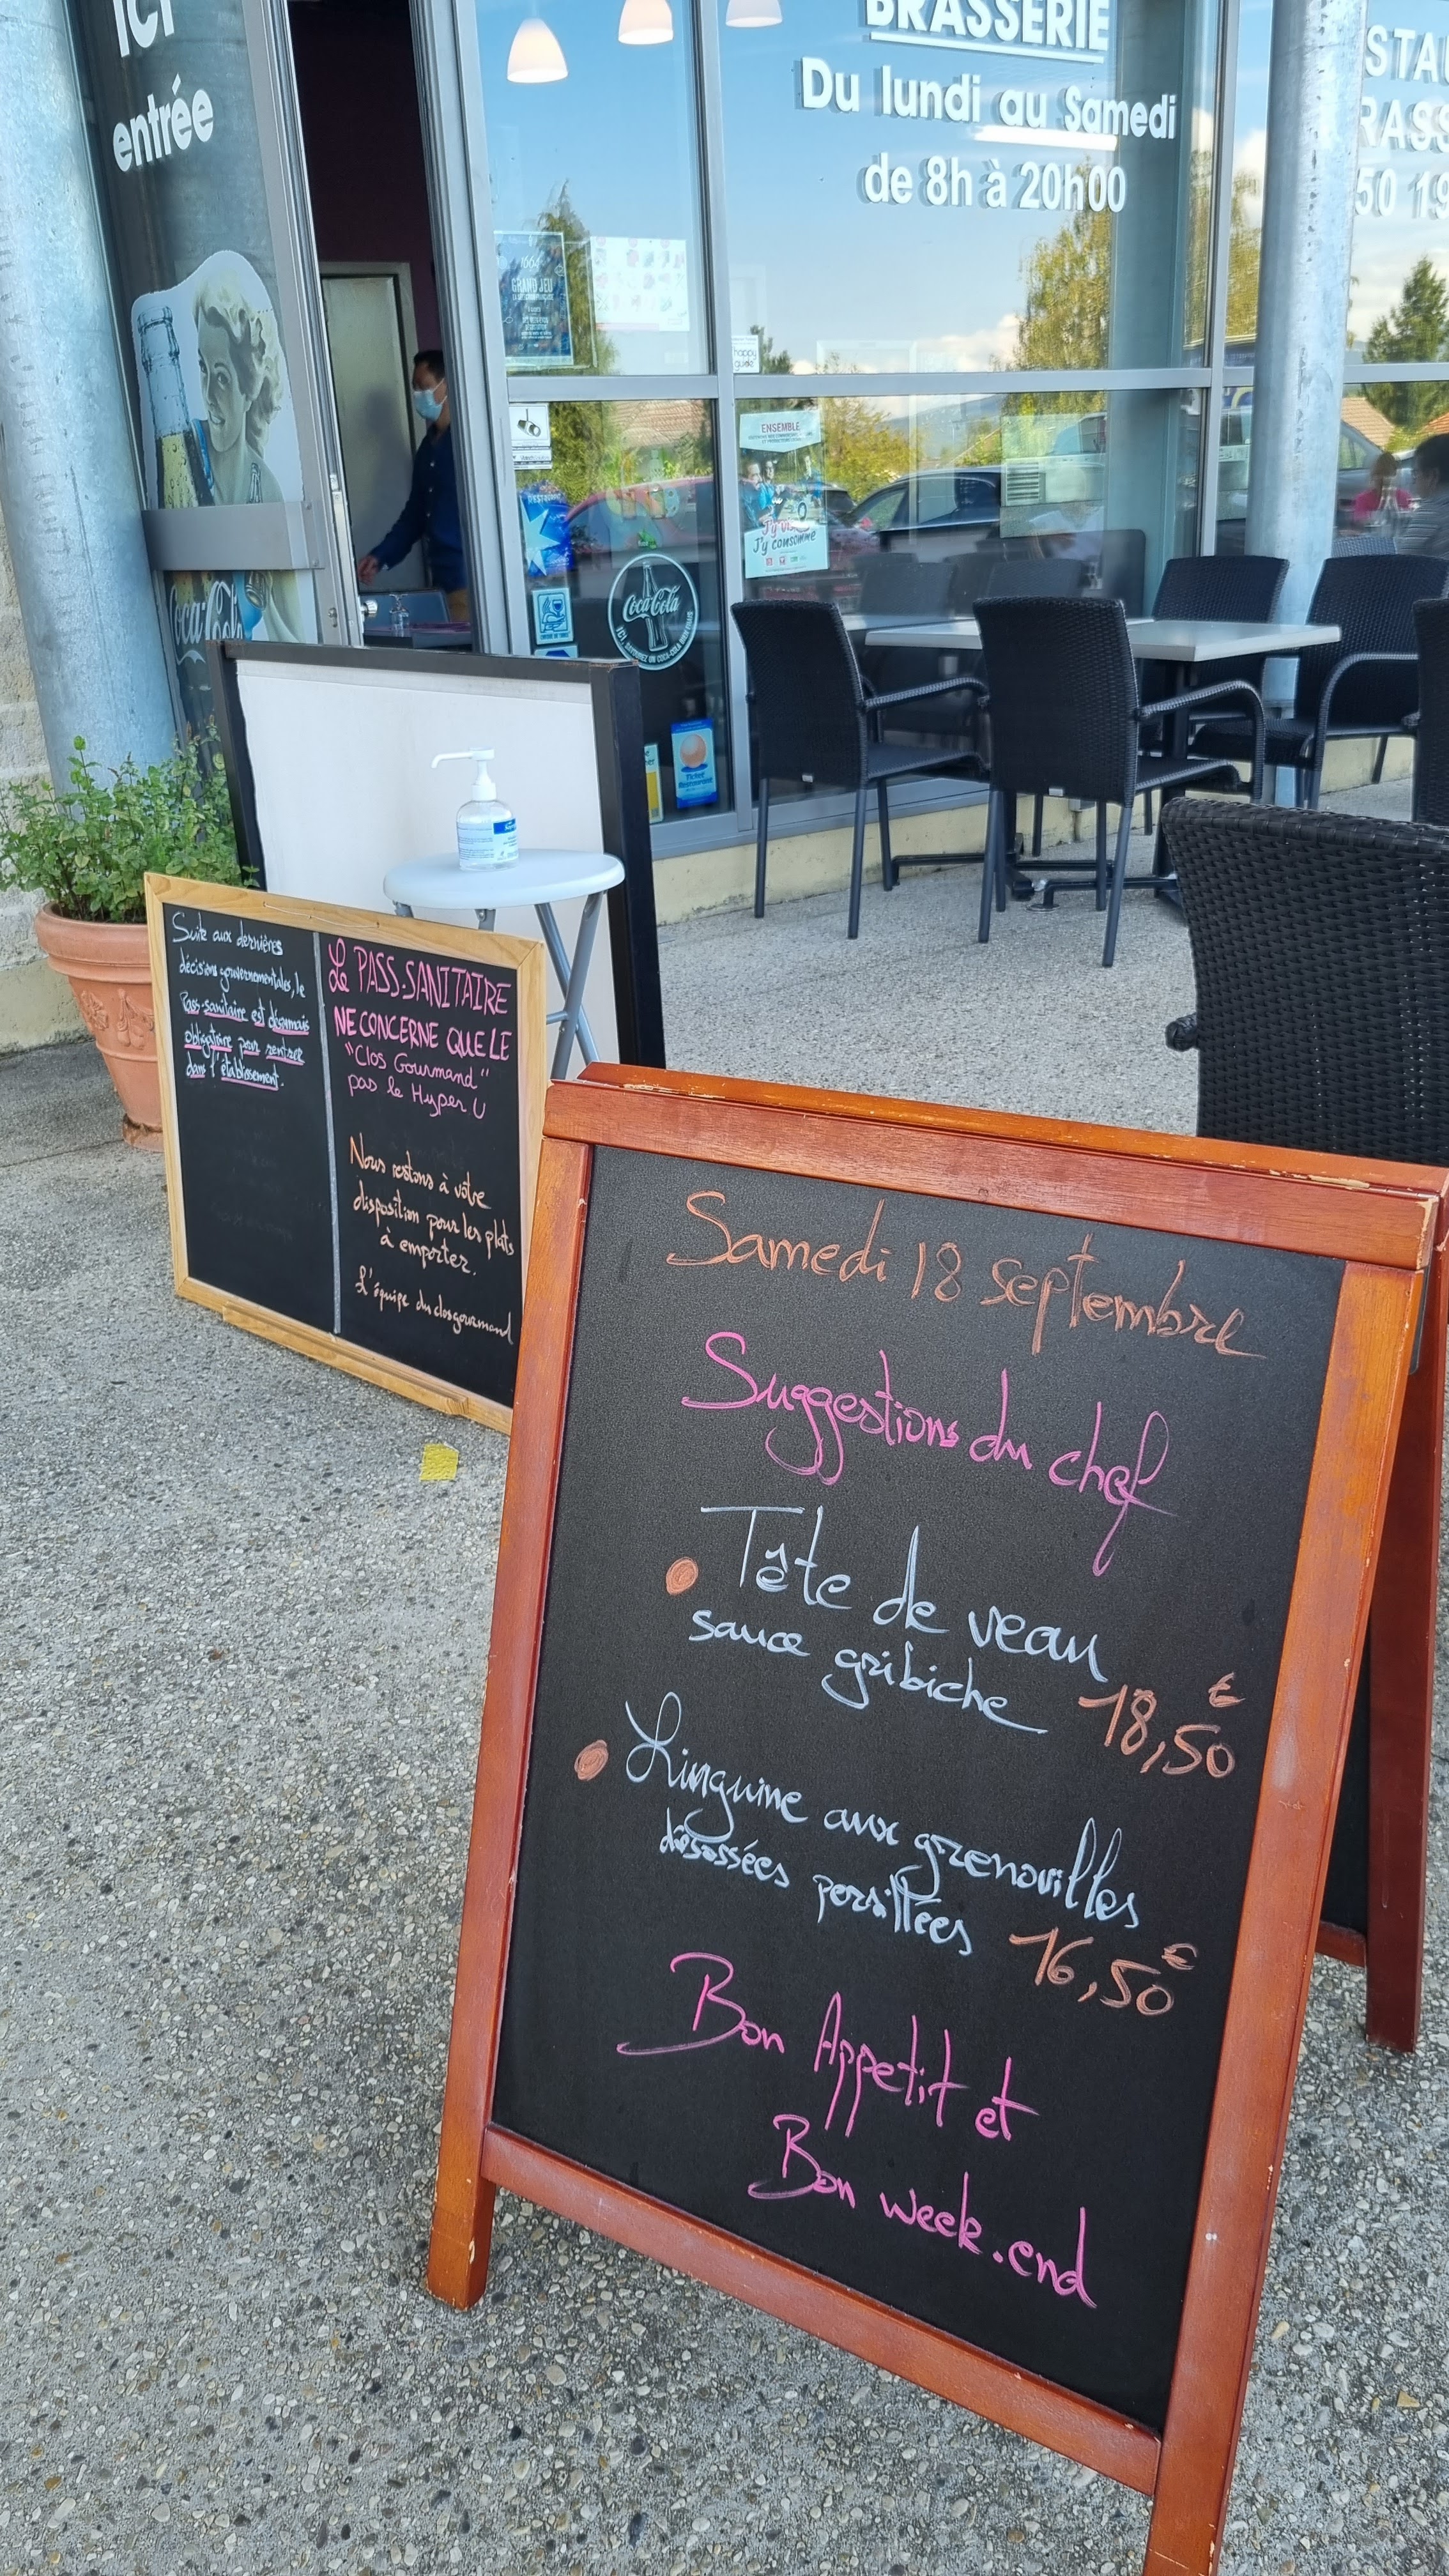 ICI
entrée
BRASSERIE
Du lundi au Samedi
de 8h à 20h00
STAU
RASS
50 19
1664
GRAND JEU
happy
guide
ENSEMBLE
J'y vis
J'y consomme
Coca-Cola
Coca-Cola
Ticket
Restaurant
Suite aux dernières
décisions gouvernementales, le
Pass-sanitaire est désormais
obligatoire pour rentrer
dans l'établissement.
Le PASS-SANITAIRE
NE CONCERNE QUE LE
"Clos Gourmand"
pas le Hyper U
Nous restons à votre
disposition pour les plats
à emporter.
L'équipe du clos gourmand
Samedi 18 septembre
Suggestions du chef
Tête de veau
sauce gribiche 18,50 €
Linguine aux grenouilles
désossées persillées 16,50 €
Bon Appetit et
Bon week-end